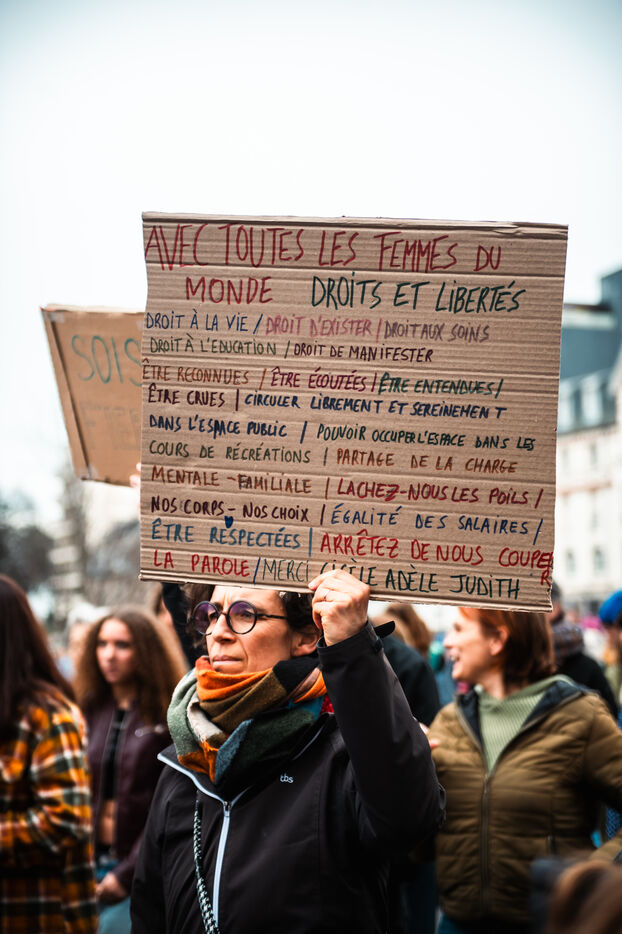 AVEC TOUTES LES FEMMES DU
MONDE DROITS ET LIBERTÉS
DROIT À LA VIE / DROIT D'EXISTER / DROIT AUX SOINS
DROIT À L'EDUCATION / DROIT DE MANIFESTER
ÊTRE RECONNUES / ÊTRE ÉCOUTÉES / ÊTRE ENTENDUES /
ÊTRE CRUES | CIRCULER LIBREMENT ET SEREINEMENT
DANS L'ESPACE PUBLIC / POUVOIR OCCUPER L'ESPACE DANS LES
COURS DE RÉCRÉATIONS / PARTAGE DE LA CHARGE
MENTALE - FAMILIALE | LACHEZ-NOUS LES POILS /
NOS CORPS - NOS CHOIX | ÉGALITÉ DES SALAIRES /
ÊTRE RESPECTÉES | ARRÊTEZ DE NOUS COUPER
LA PAROLE / MERCI ADÈLE JUDITH
SOIS
tbs